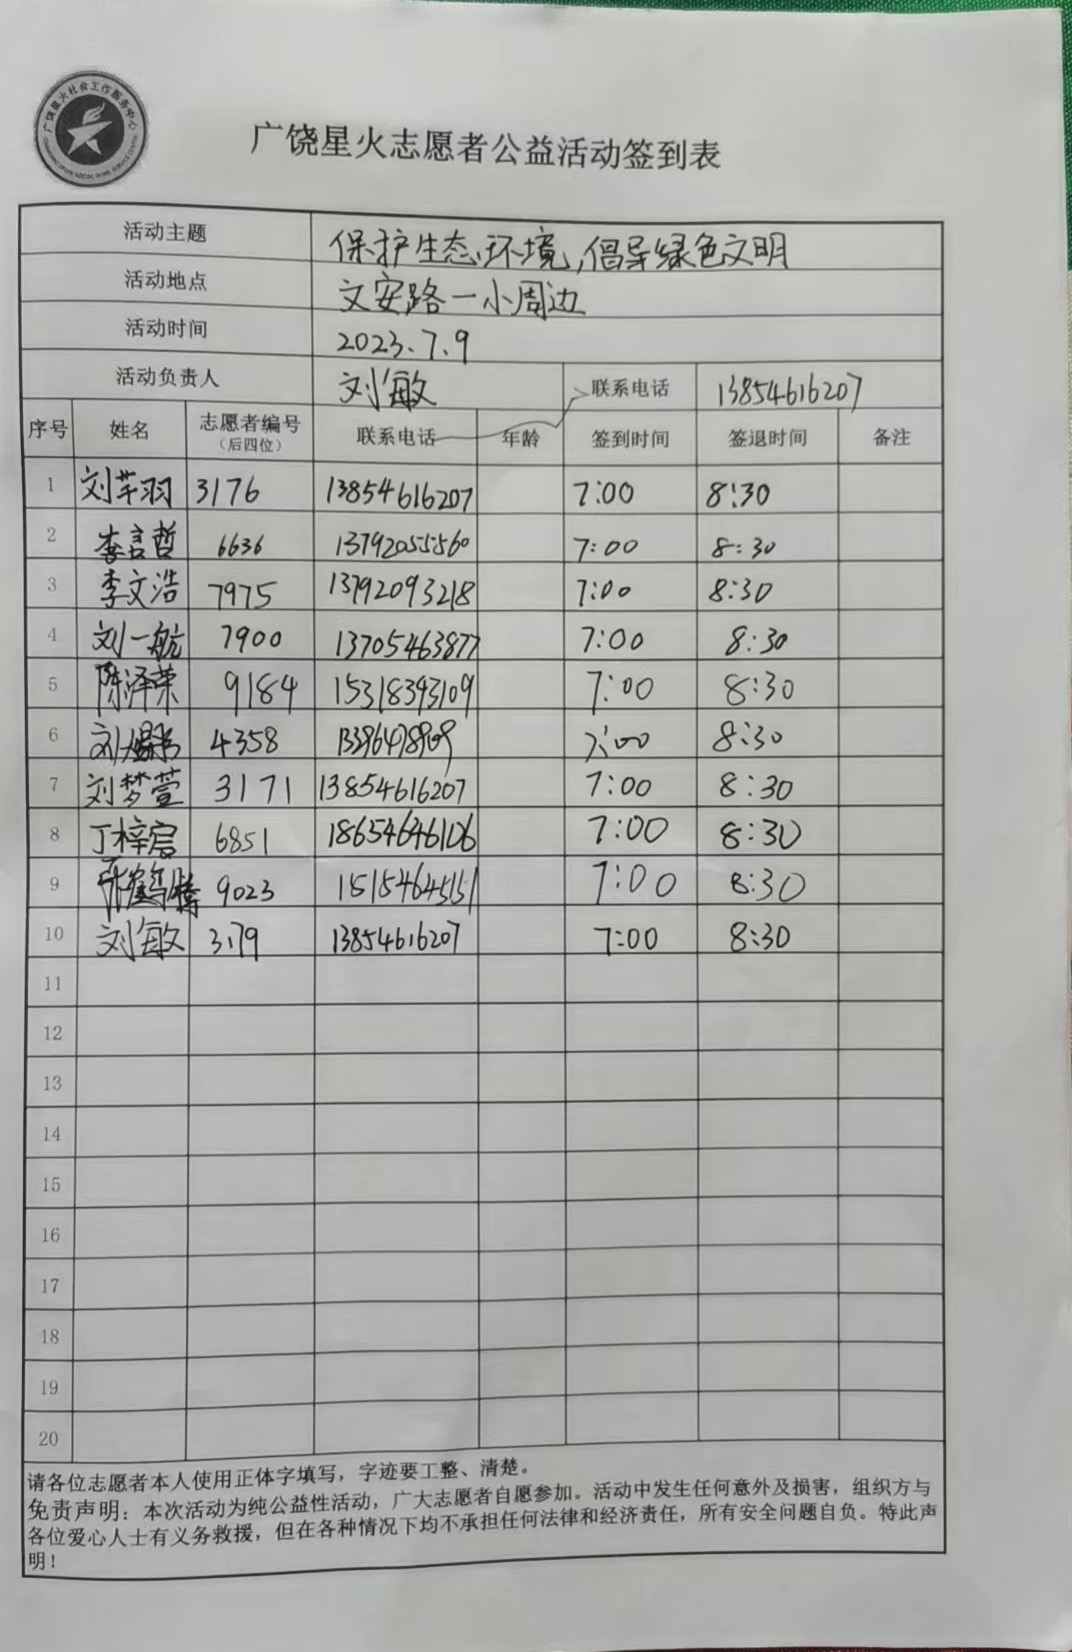 广饶星火社会工作服务中心
广饶星火志愿者公益活动签到表
活动主题 保护生态环境,倡导绿色文明
活动地点 文安路一小周边
活动时间 2023.7.9
活动负责人 刘敏 联系电话 13854616207
序号 姓名 志愿者编号(后四位) 联系电话 年龄 签到时间 签退时间 备注
1 刘芊羽 3176 13854616207 7:00 8:30
2 李言哲 6636 13792055560 7:00 8:30
3 李文浩 7975 13792093218 7:00 8:30
4 刘一航 7900 13705463877 7:00 8:30
5 陈泽荣 9184 15318393109 7:00 8:30
6 4358 7:00 8:30
7 刘梦萱 3171 13854616207 7:00 8:30
8 丁梓宸 6851 18654646106 7:00 8:30
9 张鹤腾 9023 15154645151 7:00 8:30
10 刘敏 3179 13854616207 7:00 8:30
11
12
13
14
15
16
17
18
19
20
请各位志愿者本人使用正体字填写，字迹要工整、清楚。
免责声明：本次活动为纯公益性活动，广大志愿者自愿参加。活动中发生任何意外及损害，组织方与
各位爱心人士有义务救援，但在各种情况下均不承担任何法律和经济责任，所有安全问题自负。特此声
明！